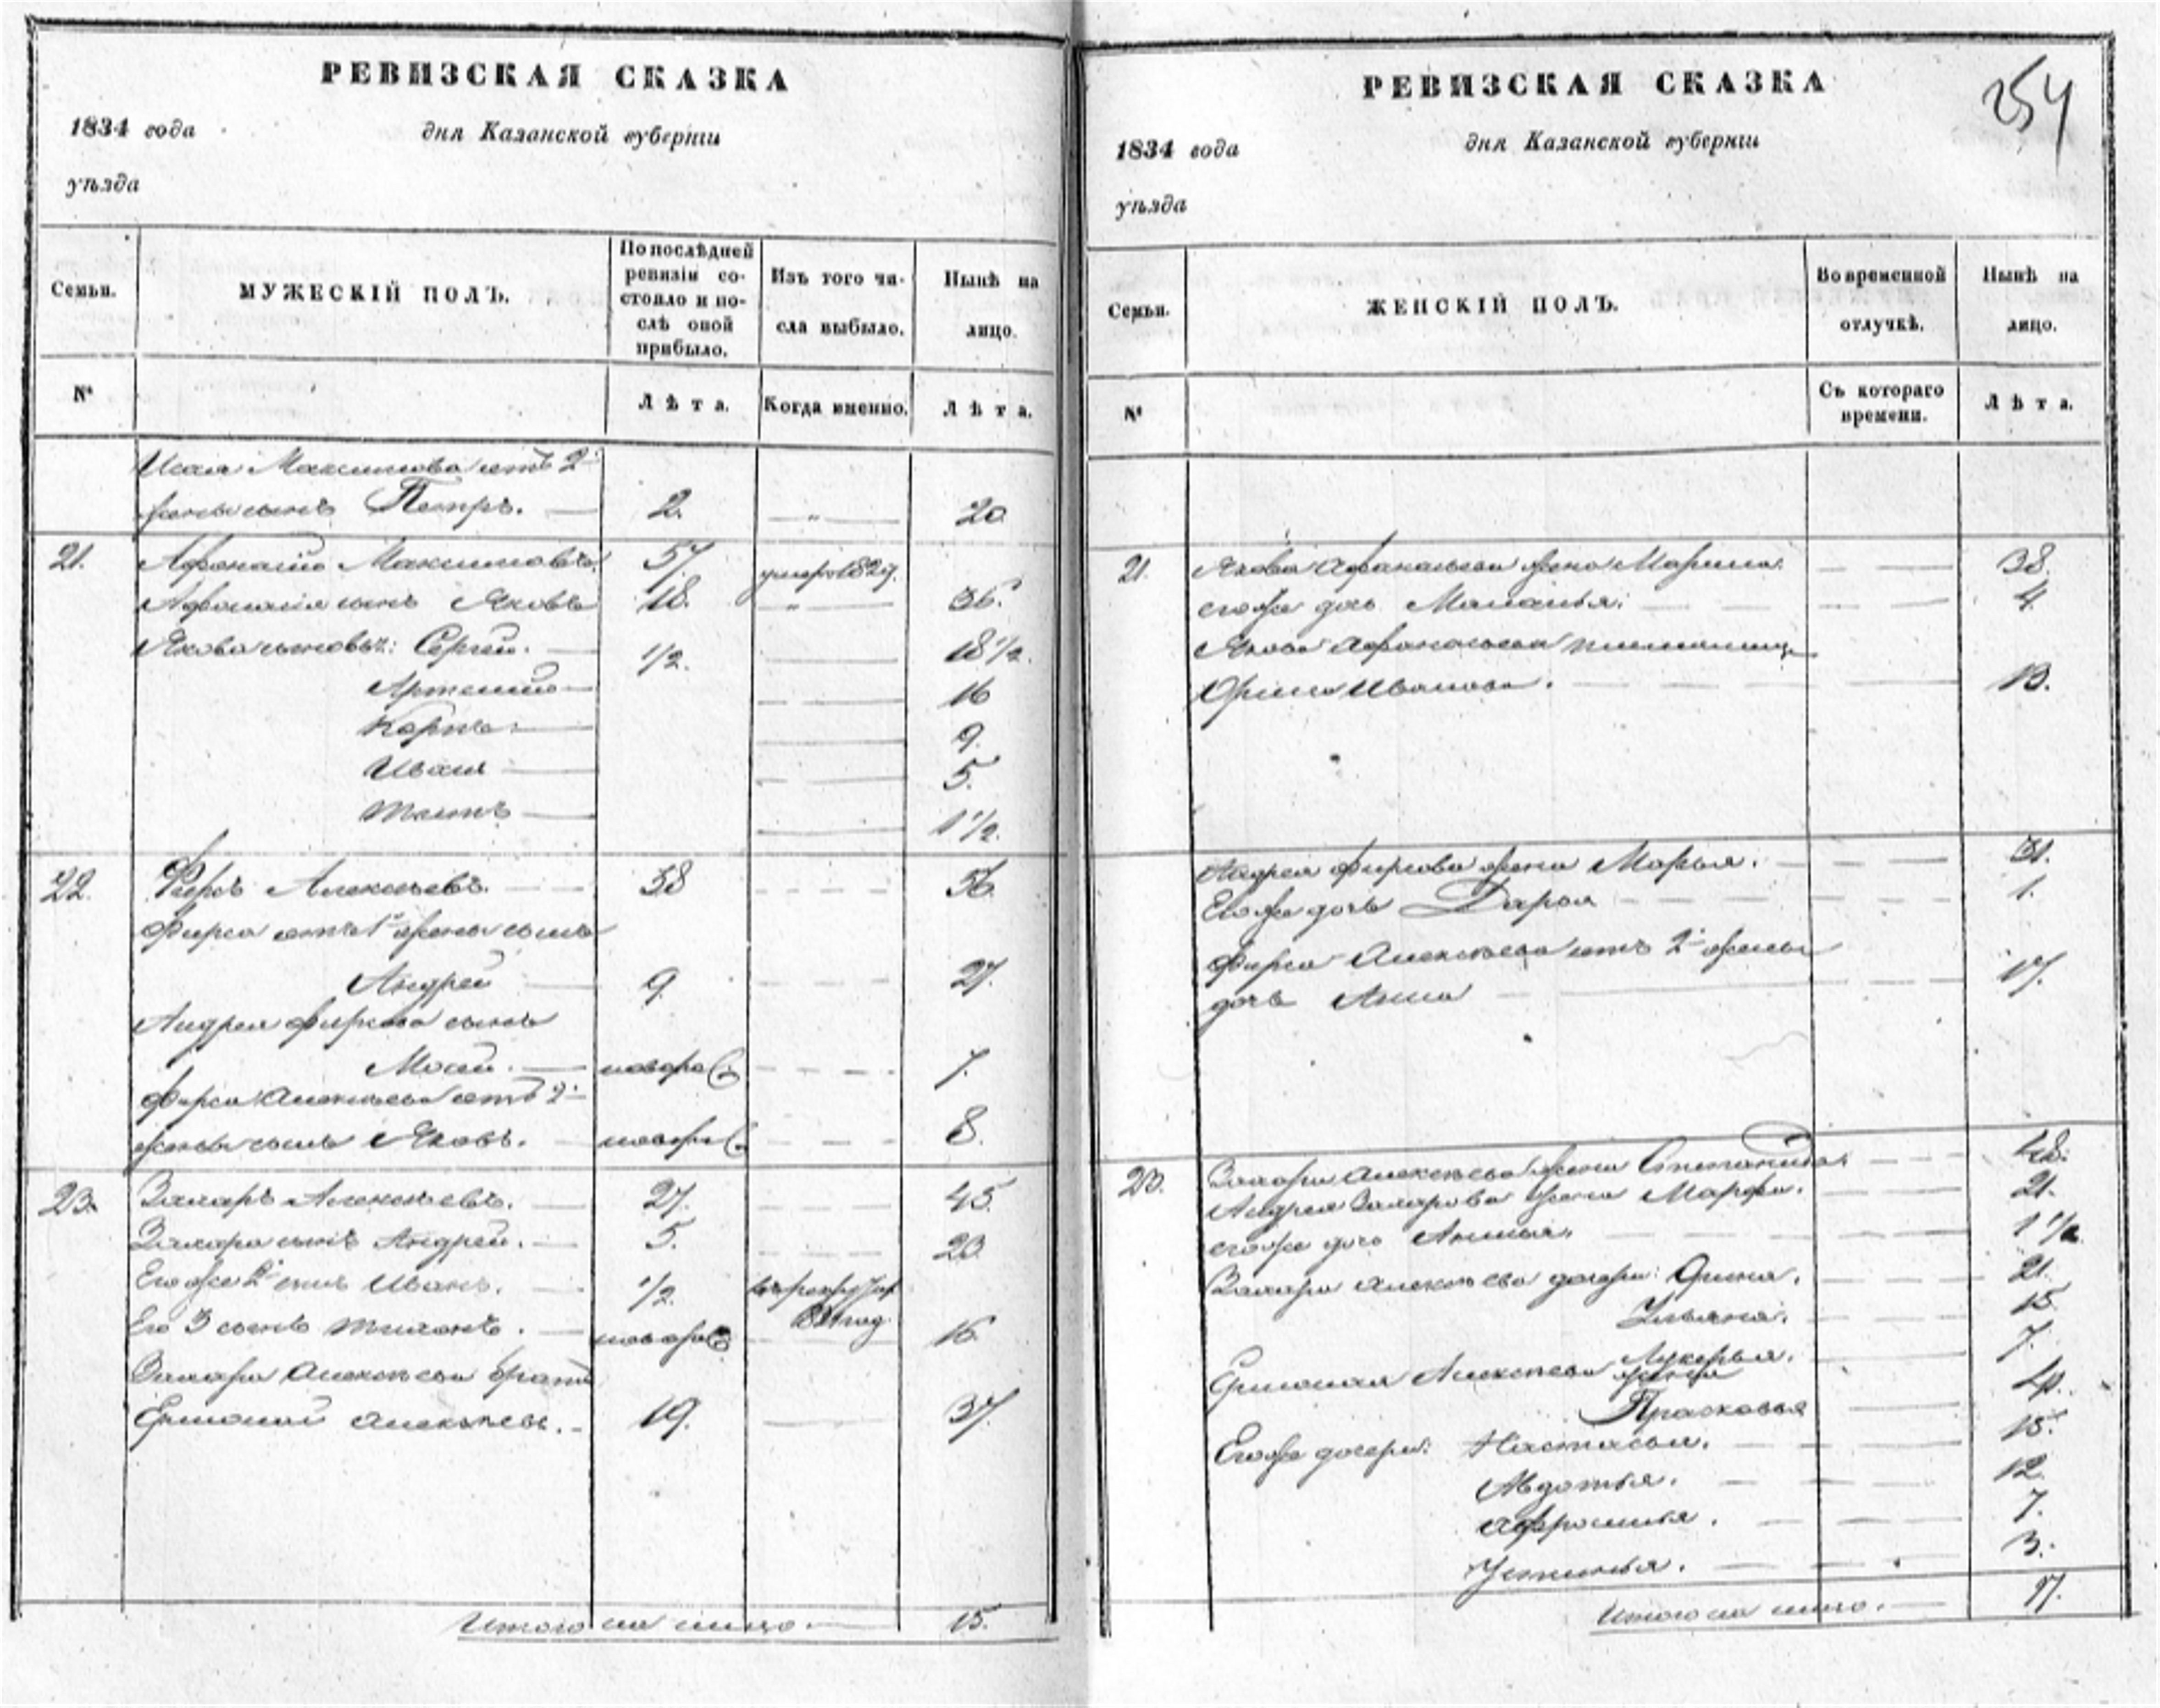 РЕВИЗСКАЯ СКАЗКА
1834 года
дня Казанской губернiи
уѣзда
Семьи.
МУЖЕСКІЙ ПОЛЪ.
По послѣдней
ревизіи со-
стояло и по-
слѣ оной
прибыло.
Изъ того чи-
сла выбыло.
Нынѣ на
лицо.
№
Лѣта.
Когда именно.
Лѣта.
Исая Максимова отъ 2й
жены сынъ Петръ. 2. 20
21. Афонасiй Максимовъ. 57 умеръ 1827.
Афонасiя сынъ Яковъ 18. 36.
Якова сыновья: Сергей. 1/2. 18 1/2.
Артемiй 16
Карпъ 9.
Иванъ 5.
Титъ 1 1/2.
22. Фирсъ Алексѣевъ. 38 56.
Фирса отъ 1й жены сынъ
Андрей 9. 27.
Андрея Фирсова сынъ
Мосей. новоро 7.
Фирса Алексѣева отъ 2й
жены сынъ Яковъ. новоро 8.
23. Захаръ Алексѣевъ. 27. 45.
Захара сынъ Андрей. 5. 23.
Его же 2й сынъ Иванъ. 1/2.
Его 3 сынъ Тихонъ. новоро 16.
Захара Алексѣева братъ
Ермолай Алексѣевъ. 19. 37.
Итого на лицо. 15.
РЕВИЗСКАЯ СКАЗКА
254
1834 года
дня Казанской губернiи
уѣзда
Семьи.
ЖЕНСКІЙ ПОЛЪ.
Во временной
отлучкѣ.
Нынѣ на
лицо.
№
Съ котораго
времени.
Лѣта.
21. Якова Афонасьева жена Марина 38.
его же дочь Маланья. 4.
Якова Афонасьева племянница
Орина Иванова. 13.
Андрея Фирсова жена Марья. 31.
Его же дочь Дарья 1.
Фирса Алексѣева отъ 2й жены
дочь Анна 17.
23. Захара Алексѣева жена Степанида. 48.
Андрея Захарова жена Марфа. 21.
его же дочь Анисья. 1 1/2.
Захара Алексѣева дочери: Орина. 21.
Ульяна. 15.
Лукерья. 7.
Ермолая Алексѣева жена
Прасковья
Его же дочери: Настасья. 15.
Авдотья. 12.
Афросинья. 7.
Устинья. 3.
Итого на лицо. 17.